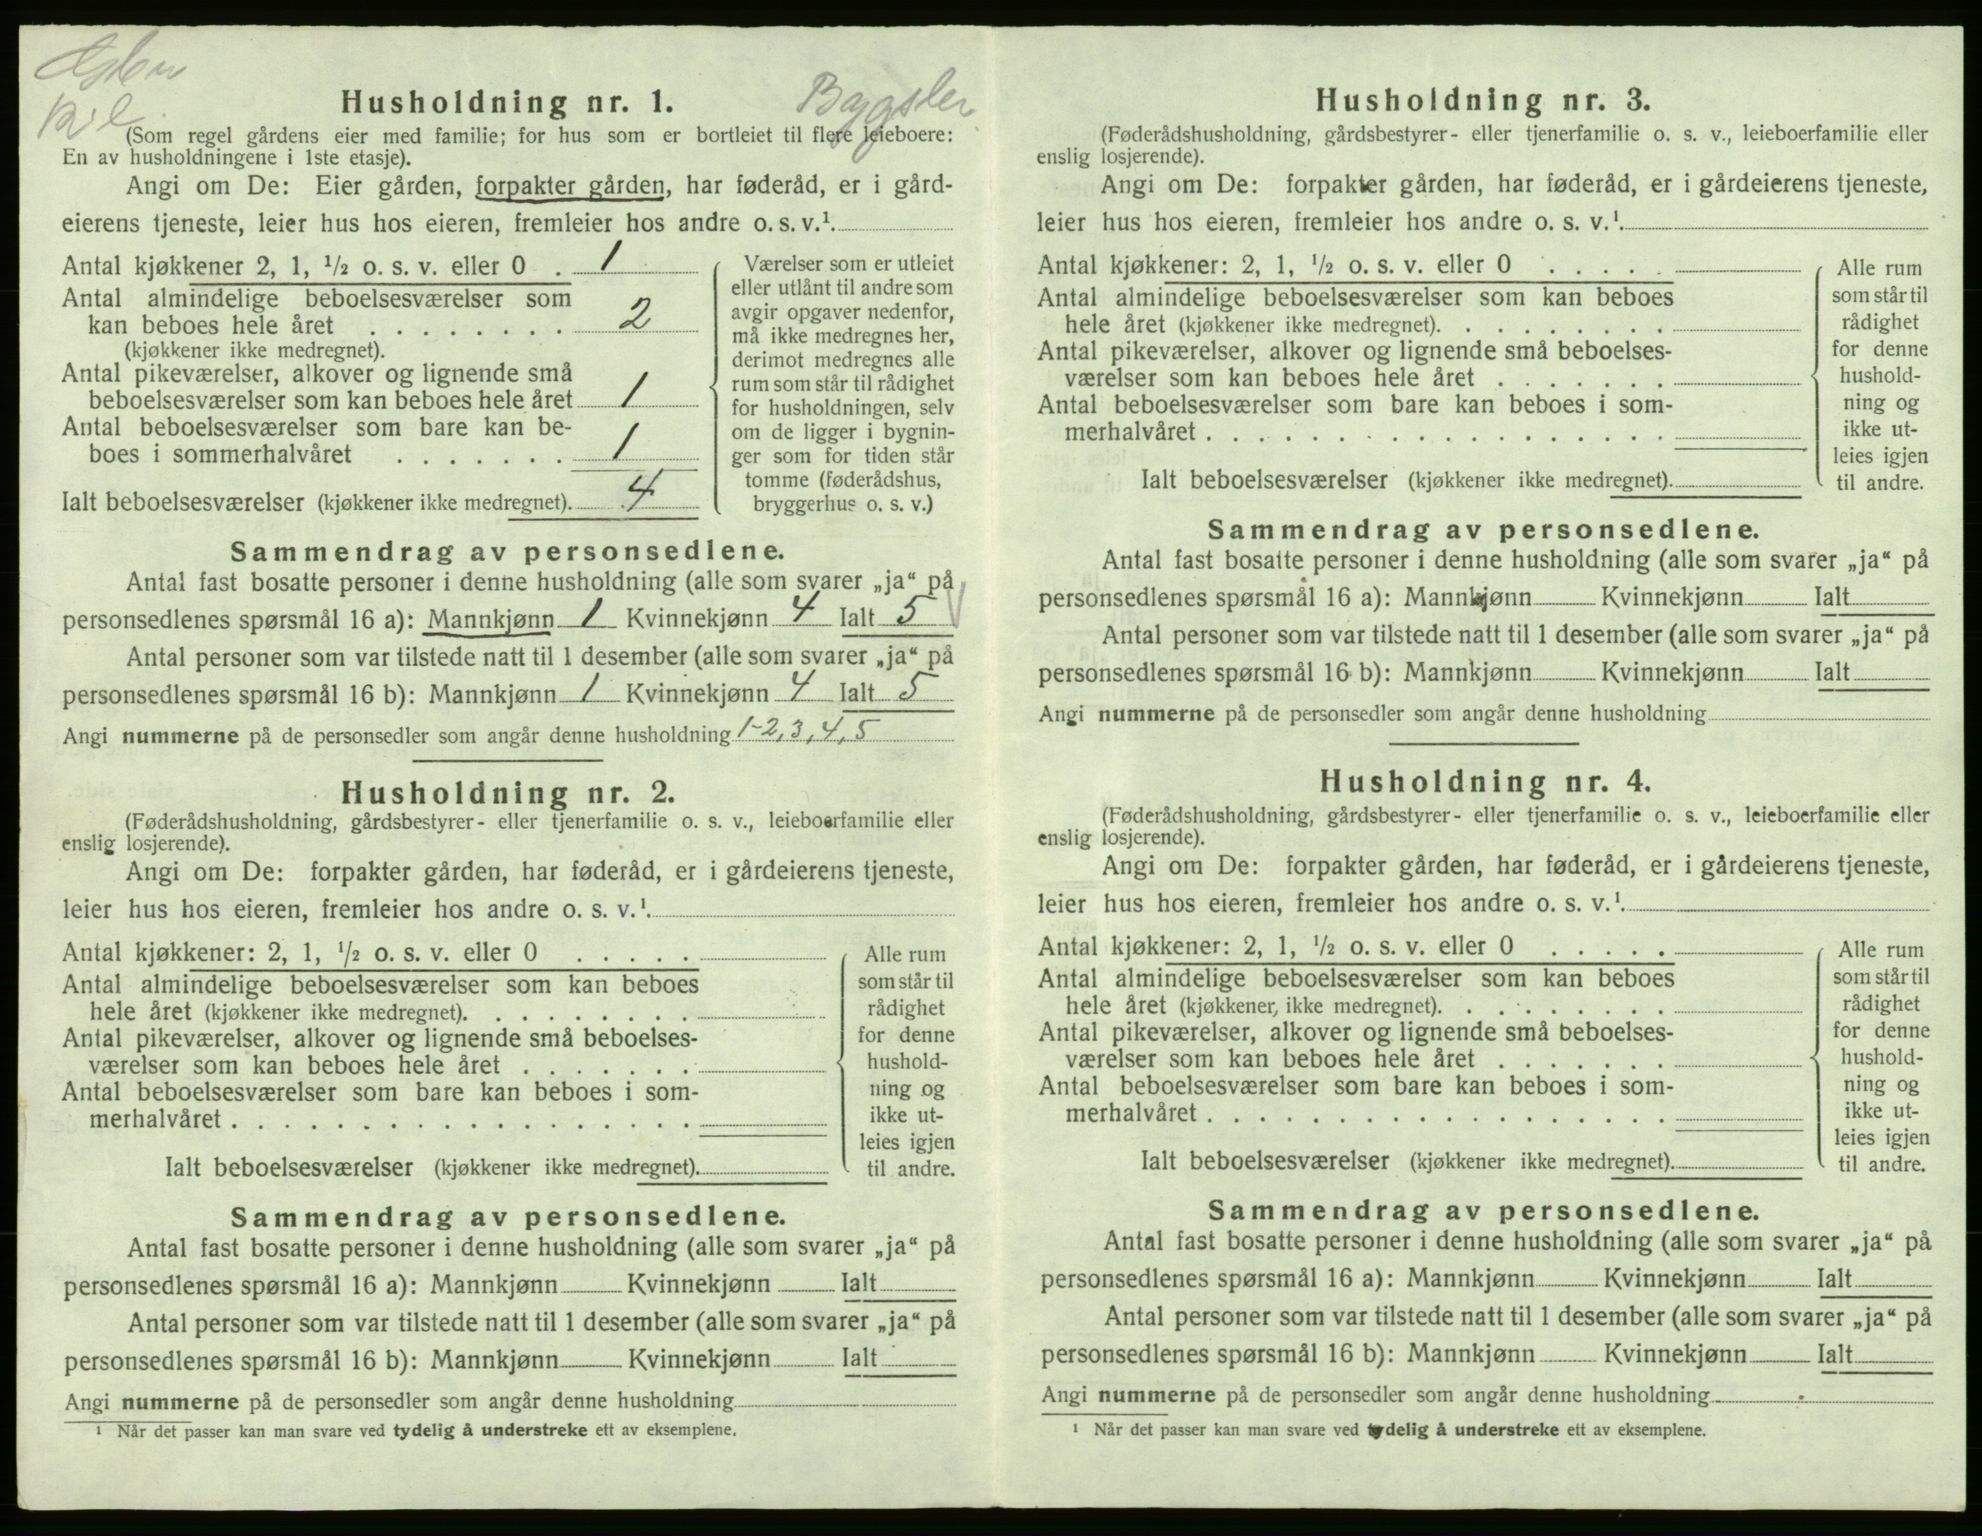 Kil
Bygsler
Husholdning nr. 1.
(Som regel gårdens eier med familie; for hus som er bortleiet til flere leieboere:
En av husholdningene i 1ste etasje).
Angi om De: Eier gården, forpakter gården, har føderåd, er i gård-
eierens tjeneste, leier hus hos eieren, fremleier hos andre o. s. v.¹.
Antal kjøkkener 2, 1, ½ o. s. v. eller 0 . 1
Antal almindelige beboelsesværelser som
kan beboes hele året . . . . . . . . 2
(kjøkkener ikke medregnet).
Antal pikeværelser, alkover og lignende små
beboelsesværelser som kan beboes hele året 1
Antal beboelsesværelser som bare kan be-
boes i sommerhalvåret . . . . . . . 1
Ialt beboelsesværelser (kjøkkener ikke medregnet). 4
Værelser som er utleiet
eller utlånt til andre som
avgir opgaver nedenfor,
må ikke medregnes her,
derimot medregnes alle
rum som står til rådighet
for husholdningen, selv
om de ligger i bygnin-
ger som for tiden står
tomme (føderådshus,
bryggerhus o. s. v.)
Sammendrag av personsedlene.
Antal fast bosatte personer i denne husholdning (alle som svarer „ja“ på
personsedlenes spørsmål 16 a): Mannkjønn 1 Kvinnekjønn 4 Ialt 5
Antal personer som var tilstede natt til 1 desember (alle som svarer „ja“ på
personsedlenes spørsmål 16 b): Mannkjønn 1 Kvinnekjønn 4 Ialt 5
Angi nummerne på de personsedler som angår denne husholdning 1-2, 3, 4, 5
Husholdning nr. 2.
(Føderådshusholdning, gårdsbestyrer- eller tjenerfamilie o. s. v., leieboerfamilie eller
enslig losjerende).
Angi om De: forpakter gården, har føderåd, er i gårdeierens tjeneste,
leier hus hos eieren, fremleier hos andre o. s. v.¹.
Antal kjøkkener: 2, 1, ½ o. s. v. eller 0 . . . . .
Antal almindelige beboelsesværelser som kan beboes
hele året (kjøkkener ikke medregnet). . . . . . . . .
Antal pikeværelser, alkover og lignende små beboelses-
værelser som kan beboes hele året . . . . . . .
Antal beboelsesværelser som bare kan beboes i som-
merhalvåret . . . . . . . . . . . . . . . . . .
Ialt beboelsesværelser (kjøkkener ikke medregnet).
Alle rum
som står til
rådighet
for denne
hushold-
ning og
ikke ut-
leies igjen
til andre.
Sammendrag av personsedlene.
Antal fast bosatte personer i denne husholdning (alle som svarer „ja“ på
personsedlenes spørsmål 16 a): Mannkjønn Kvinnekjønn Ialt
Antal personer som var tilstede natt til 1 desember (alle som svarer „ja“ på
personsedlenes spørsmål 16 b): Mannkjønn Kvinnekjønn Ialt
Angi nummerne på de personsedler som angår denne husholdning
¹ Når det passer kan man svare ved tydelig å understreke ett av eksemplene.
Husholdning nr. 3.
(Føderådshusholdning, gårdsbestyrer- eller tjenerfamilie o. s. v., leieboerfamilie eller
enslig losjerende).
Angi om De: forpakter gården, har føderåd, er i gårdeierens tjeneste,
leier hus hos eieren, fremleier hos andre o. s. v.¹.
Antal kjøkkener: 2, 1, ½ o. s. v. eller 0 . . . . .
Antal almindelige beboelsesværelser som kan beboes
hele året (kjøkkener ikke medregnet). . . . . . . . .
Antal pikeværelser, alkover og lignende små beboelses-
værelser som kan beboes hele året . . . . . . .
Antal beboelsesværelser som bare kan beboes i som-
merhalvåret . . . . . . . . . . . . . . . . . .
Ialt beboelsesværelser (kjøkkener ikke medregnet).
Alle rum
som står til
rådighet
for denne
hushold-
ning og
ikke ut-
leies igjen
til andre.
Sammendrag av personsedlene.
Antal fast bosatte personer i denne husholdning (alle som svarer „ja“ på
personsedlenes spørsmål 16 a): Mannkjønn Kvinnekjønn Ialt
Antal personer som var tilstede natt til 1 desember (alle som svarer „ja“ på
personsedlenes spørsmål 16 b): Mannkjønn Kvinnekjønn Ialt
Angi nummerne på de personsedler som angår denne husholdning
Husholdning nr. 4.
(Føderådshusholdning, gårdsbestyrer- eller tjenerfamilie o. s. v., leieboerfamilie eller
enslig losjerende).
Angi om De: forpakter gården, har føderåd, er i gårdeierens tjeneste,
leier hus hos eieren, fremleier hos andre o. s. v.¹.
Antal kjøkkener: 2, 1, ½ o. s. v. eller 0 . . . . .
Antal almindelige beboelsesværelser som kan beboes
hele året (kjøkkener, ikke medregnet). . . . . . . . .
Antal pikeværelser, alkover og lignende små beboelses-
værelser som kan beboes hele året . . . . . . .
Antal beboelsesværelser som bare kan beboes i som-
merhalvåret . . . . . . . . . . . . . . . . . .
Ialt beboelsesværelser (kjøkkener ikke medregnet).
Alle rum
som står til
rådighet
for denne
hushold-
ning og
ikke ut-
leies igjen
til andre.
Sammendrag av personsedlene.
Antal fast bosatte personer i denne husholdning (alle som svarer „ja“ på
personsedlenes spørsmål 16 a): Mannkjønn Kvinnekjønn Ialt
Antal personer som var tilstede natt til 1 desember (alle som svarer „ja“ på
personsedlenes spørsmål 16 b): Mannkjønn Kvinnekjønn Ialt
Angi nummerne på de personsedler som angår denne husholdning
¹ Når det passer kan man svare ved tydelig å understreke ett av eksemplene.